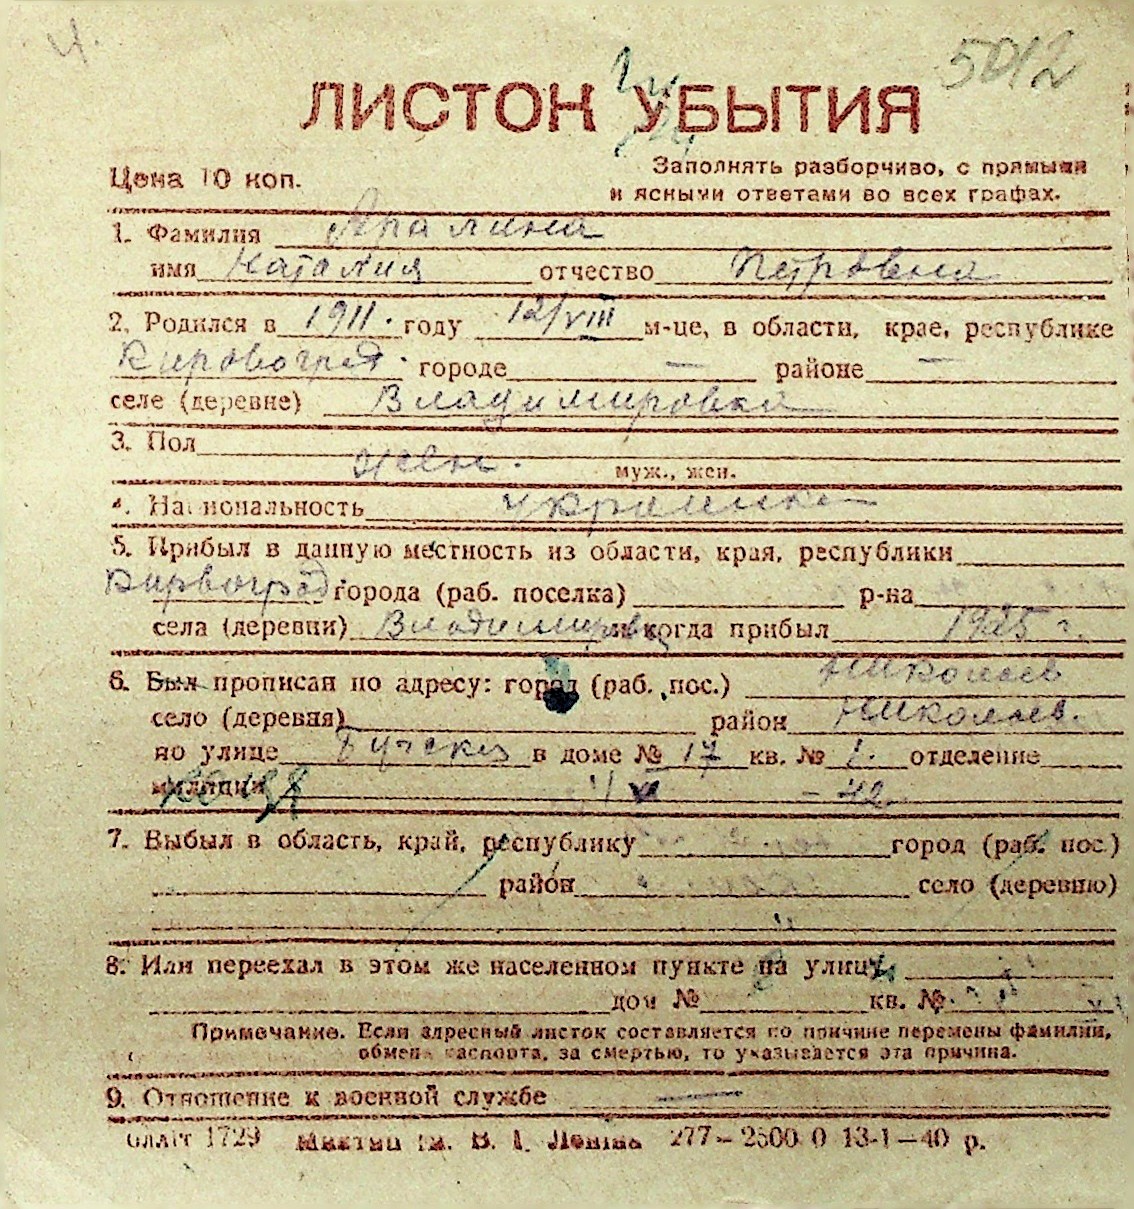 5012
ЛИСТОК УБЫТИЯ
Цена 10 коп.
Заполнять разборчиво, с прямыми
и ясными ответами во всех графах.
1. Фамилия
имя Наталия отчество Петровна
2. Родился в 1911. году 12/VIII м-це, в области, крае, республике
Кировоград. городе — районе —
селе (деревне) Владимировка
3. Пол жен.
муж., жен.
4. Национальность украинка
5. Прибыл в данную местность из области, края, республики
Кирвоград города (раб. поселка) р-на
села (деревни) Владимировка и когда прибыл 1925 г.
6. Был прописан по адресу: город (раб. пос.) Николаев
село (деревня) район Николаев.
по улице в доме № 17 кв. № 1. отделение
милиции - 42
7. Выбыл в область, край, республику город (раб. пос.)
район село (деревню)
8. Или переехал в этом же населенном пункте на улицу
дом № кв. №
Примечание. Если адресный листок составляется по причине перемены фамилии,
обмена паспорта, за смертью, то указывается эта причина.
9. Отношение к военной службе —
1729 им. В. І. Леніна 277—2500 0 13-1—40 р.